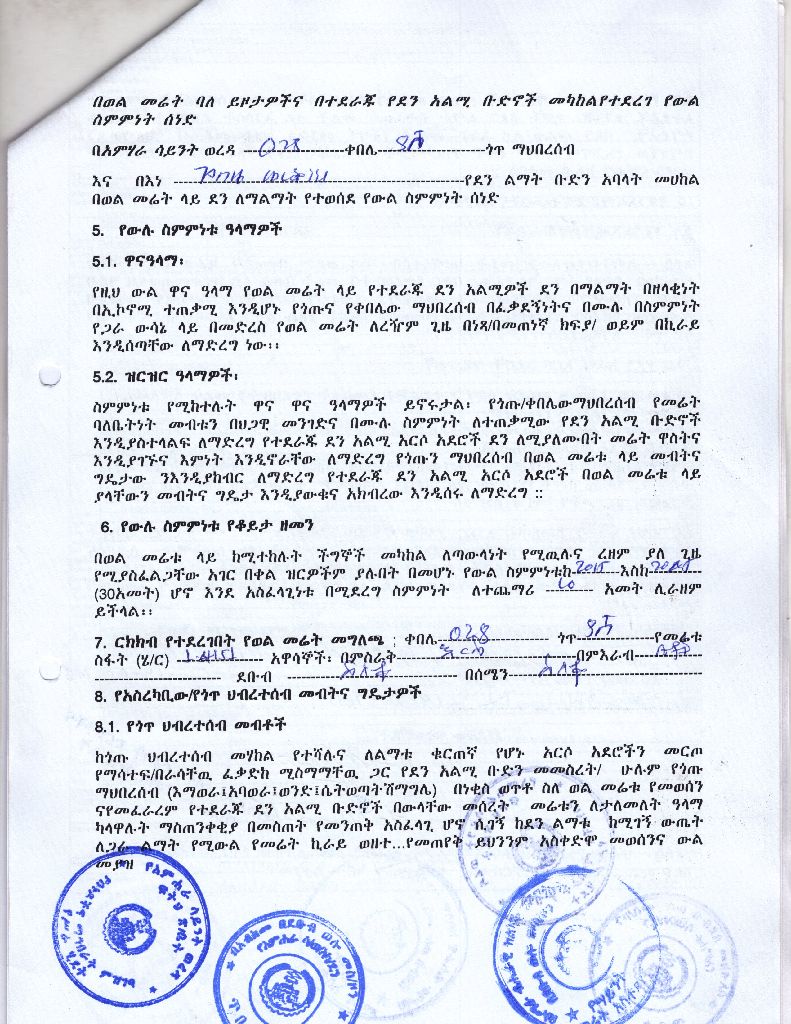 በወል መሬት ባለ ይዞታዎችና በተደራጁ የደን አልሚ ቡድኖች መካከልየተደረገ የውል
ስምምነት ሰነድ
በአምሃራ ሳይንት ወረዳ ---ቀበሌ ---ጎጥ ማህበረሰብ
እና በእነ ---የደን ልማት ቡድን አባላት መሀከል
በወል መሬት ላይ ደን ለማልማት የተወሰደ የውል ስምምነት ሰነድ
5. የውሉ ስምምነቱ ዓላማዎች
5.1. ዋናዓላማ፡
የዚህ ውል ዋና ዓላማ የወል መሬት ላይ የተደራጁ ደን አልሚዎች ደን በማልማት በዘላቂነት
በኢኮኖሚ ተጠቃሚ እንዲሆኑ የጎጡና የቀበሌው ማህበረሰብ በፈቃደኝነትና በሙሉ በስምምነት
የጋራ ውሳኔ ላይ በመድረስ የወል መሬት ለረዥም ጊዜ በነጻ/በመጠነኛ ክፍያ/ ወይም በኪራይ
እንዲሰጣቸው ለማድረግ ነው፡፡
5.2. ዝርዝር ዓላማዎች፡
ስምምነቱ የሚከተሉት ዋና ዋና ዓላማዎች ይኖሩታል፡ የጎጡ/ቀበሌውማህበረሰብ የመሬት
ባለቤትነት መብቱን በህጋዊ መንገድና በሙሉ ስምምነት ለተጠቃሚው የደን አልሚ ቡድኖች
እንዲያስተላልፍ ለማድረግ የተደራጁ ደን አልሚ አርሶ አደሮች ደን ለሚያለሙበት መሬት ዋስትና
እንዲያገኙና እምነት እንዲኖራቸው ለማድረግ የጎጡን ማህበረሰብ በወል መሬቱ ላይ መብትና
ግዴታው ንእንዲያከብር ለማድረግ የተደራጁ ደን አልሚ አርሶ አደሮች በወል መሬቱ ላይ
ያላቸውን መብትና ግዴታ እንዲያውቁና አክብረው እንዲሰሩ ለማድረግ ::
6. የውሉ ስምምነቱ የቆይታ ዘመን
በወል መሬቱ ላይ ከሚተከሉት ችግኞች መካከል ለጣውላነት የሚዉሉና ረዘም ያለ ጊዜ
የሚያስፈልጋቸው አገር በቀል ዝርዎችም ያሉበት በመሆኑ የውል ስምምነቱከ 2015 እስከ 2045
(30አመት) ሆኖ እንደ አስፈላጊነቱ በሚደረግ ስምምነት ለተጨማሪ --- አመት ሊራዘም
ይችላል፡፡
7. ርክክብ የተደረገበት የወል መሬት መግለጫ ፡ ቀበሌ --- ጎጥ ---የመሬቱ
ስፋት (ሄ/ር) --- አዋሳኞች፡ በምስራቅ ---በምእራብ ---
--- ደቡብ --- በሰሜን ---
8. የአስረካቢው/የጎጥ ህብረተሰብ መብትና ግዴታዎች
8.1. የጎጥ ህብረተሰብ መብቶች
ከጎጡ ህብረተሰብ መሃከል የተሻሉና ለልማቱ ቁርጠኛ የሆኑ አርሶ አደሮችን መርጦ
የማሳተፍ/በራሳቸዉ ፈቃድከ ሚስማማቸዉ ጋር የደን አልሚ ቡድን መመስረት/ ሁሉም የጎጡ
ማህበረሰብ (እማወራ፤አባወራ፤ወንድ፤ሴትወጣት ሽማግሌ) በነቂስ ወጥቶ ስለ ወል መሬቱ የመወሰን
ናየመፈራረም የተደራጁ ደን አልሚ ቡድኖች በውላቸው መሰረት መሬቱን ለታለመለት ዓላማ
ካላዋሉት ማስጠንቀቂያ በመስጠት የመንጠቅ አስፈላጊ ሆኖ ሲገኝ ከደን ልማቱ ከሚገኝ ውጤት
ለጋራ ልማት የሚውል የመሬት ኪራይ ወዘተ...የመጠየቅ ይህንንም አስቀድሞ መወሰንና ውል
መያዝ